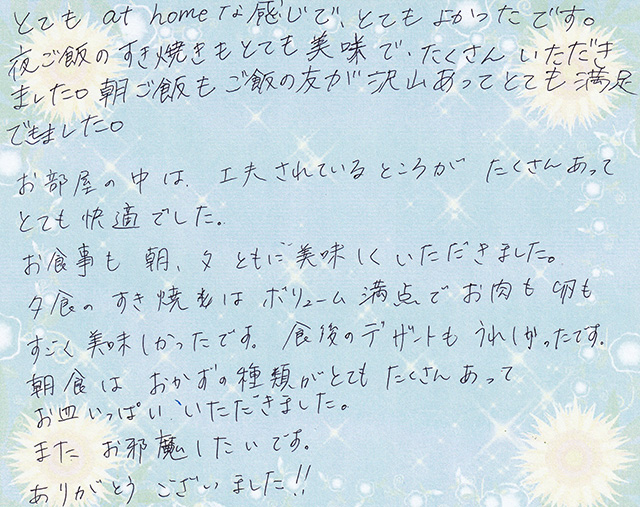 とても at homeな感じで、とてもよかったです。
夜ご飯のすき焼きもとても美味で、たくさんいただき
ました。朝ご飯もご飯の友が沢山あってとても満足
できました。
お部屋の中は、工夫されているところがたくさんあって
とても快適でした。
お食事も朝、夕ともに美味しくいただきました。
夕食のすき焼きはボリューム満点でお肉も卵も
すごく美味しかったです。食後のデザートもうれしかったです。
朝食はおかずの種類がとてもたくさんあって
お皿いっぱいいただきました。
またお邪魔したいです。
ありがとうございました!!